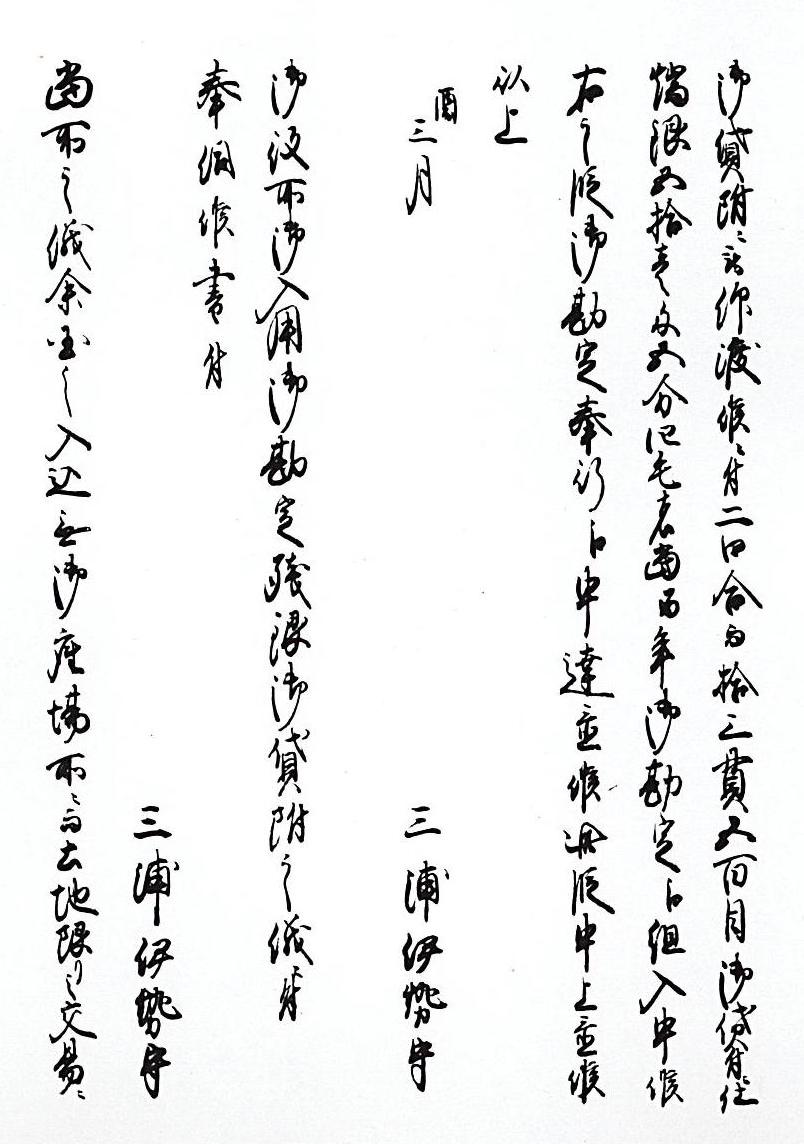 御貸附ニ被仰渡候ニ付二口合而拾三貫五百目御貸付ニ仕
端銀五拾壱匁五分四毛者当酉年御勘定江組入申候
右之段御勘定奉行江申達置候此段申上置候
以上
酉三月
三浦伊勢守
御役所御入用御勘定残銀御貸附之儀ニ付
奉伺候書付
三浦伊勢守
当所之儀余国之入込無御座場所ニ而土地限り之交易ニ